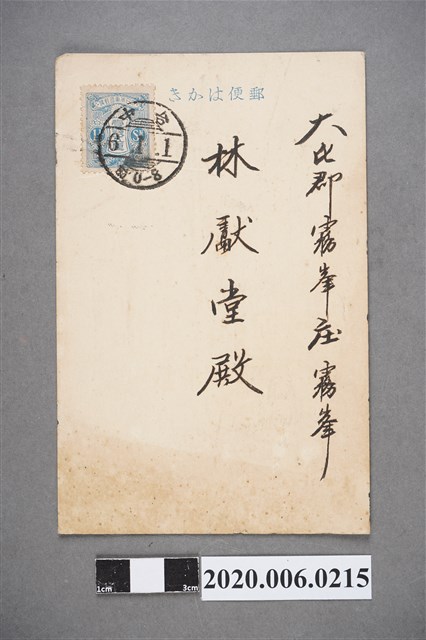 郵便はかき
大屯郡霧峯庄霧峯
林献堂殿
台中
6.1.1
1cm
3cm
2020.006.0215